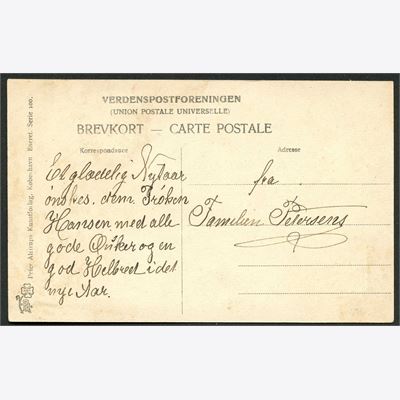 VERDENSPOSTFORENINGEN
(UNION POSTALE UNIVERSELLE)
BREVKORT — CARTE POSTALE
Korrespondance
Adresse
Et glædelig Nytaar
ønskes dem Frøken
Hansen med alle
gode Ønsker og en
god Helbred i det
nye Aar.
fra
Familien Petersens
Alstrups Kunstforlag, København Eneret. Serie 100.